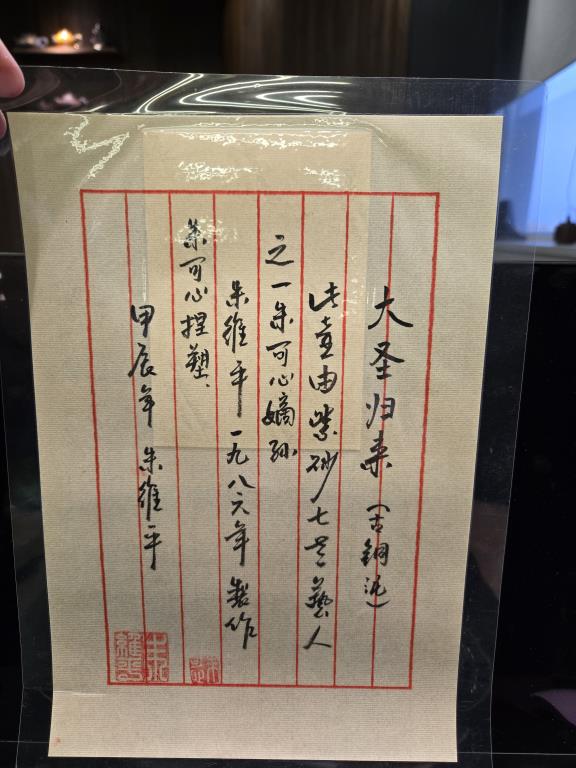 大圣归来（古铜泥）
此壶由紫砂七老藝人
之一朱可心嫡孙
朱維平一九八六年製作
葉可心捏塑、
甲辰年 朱維平
朱維平